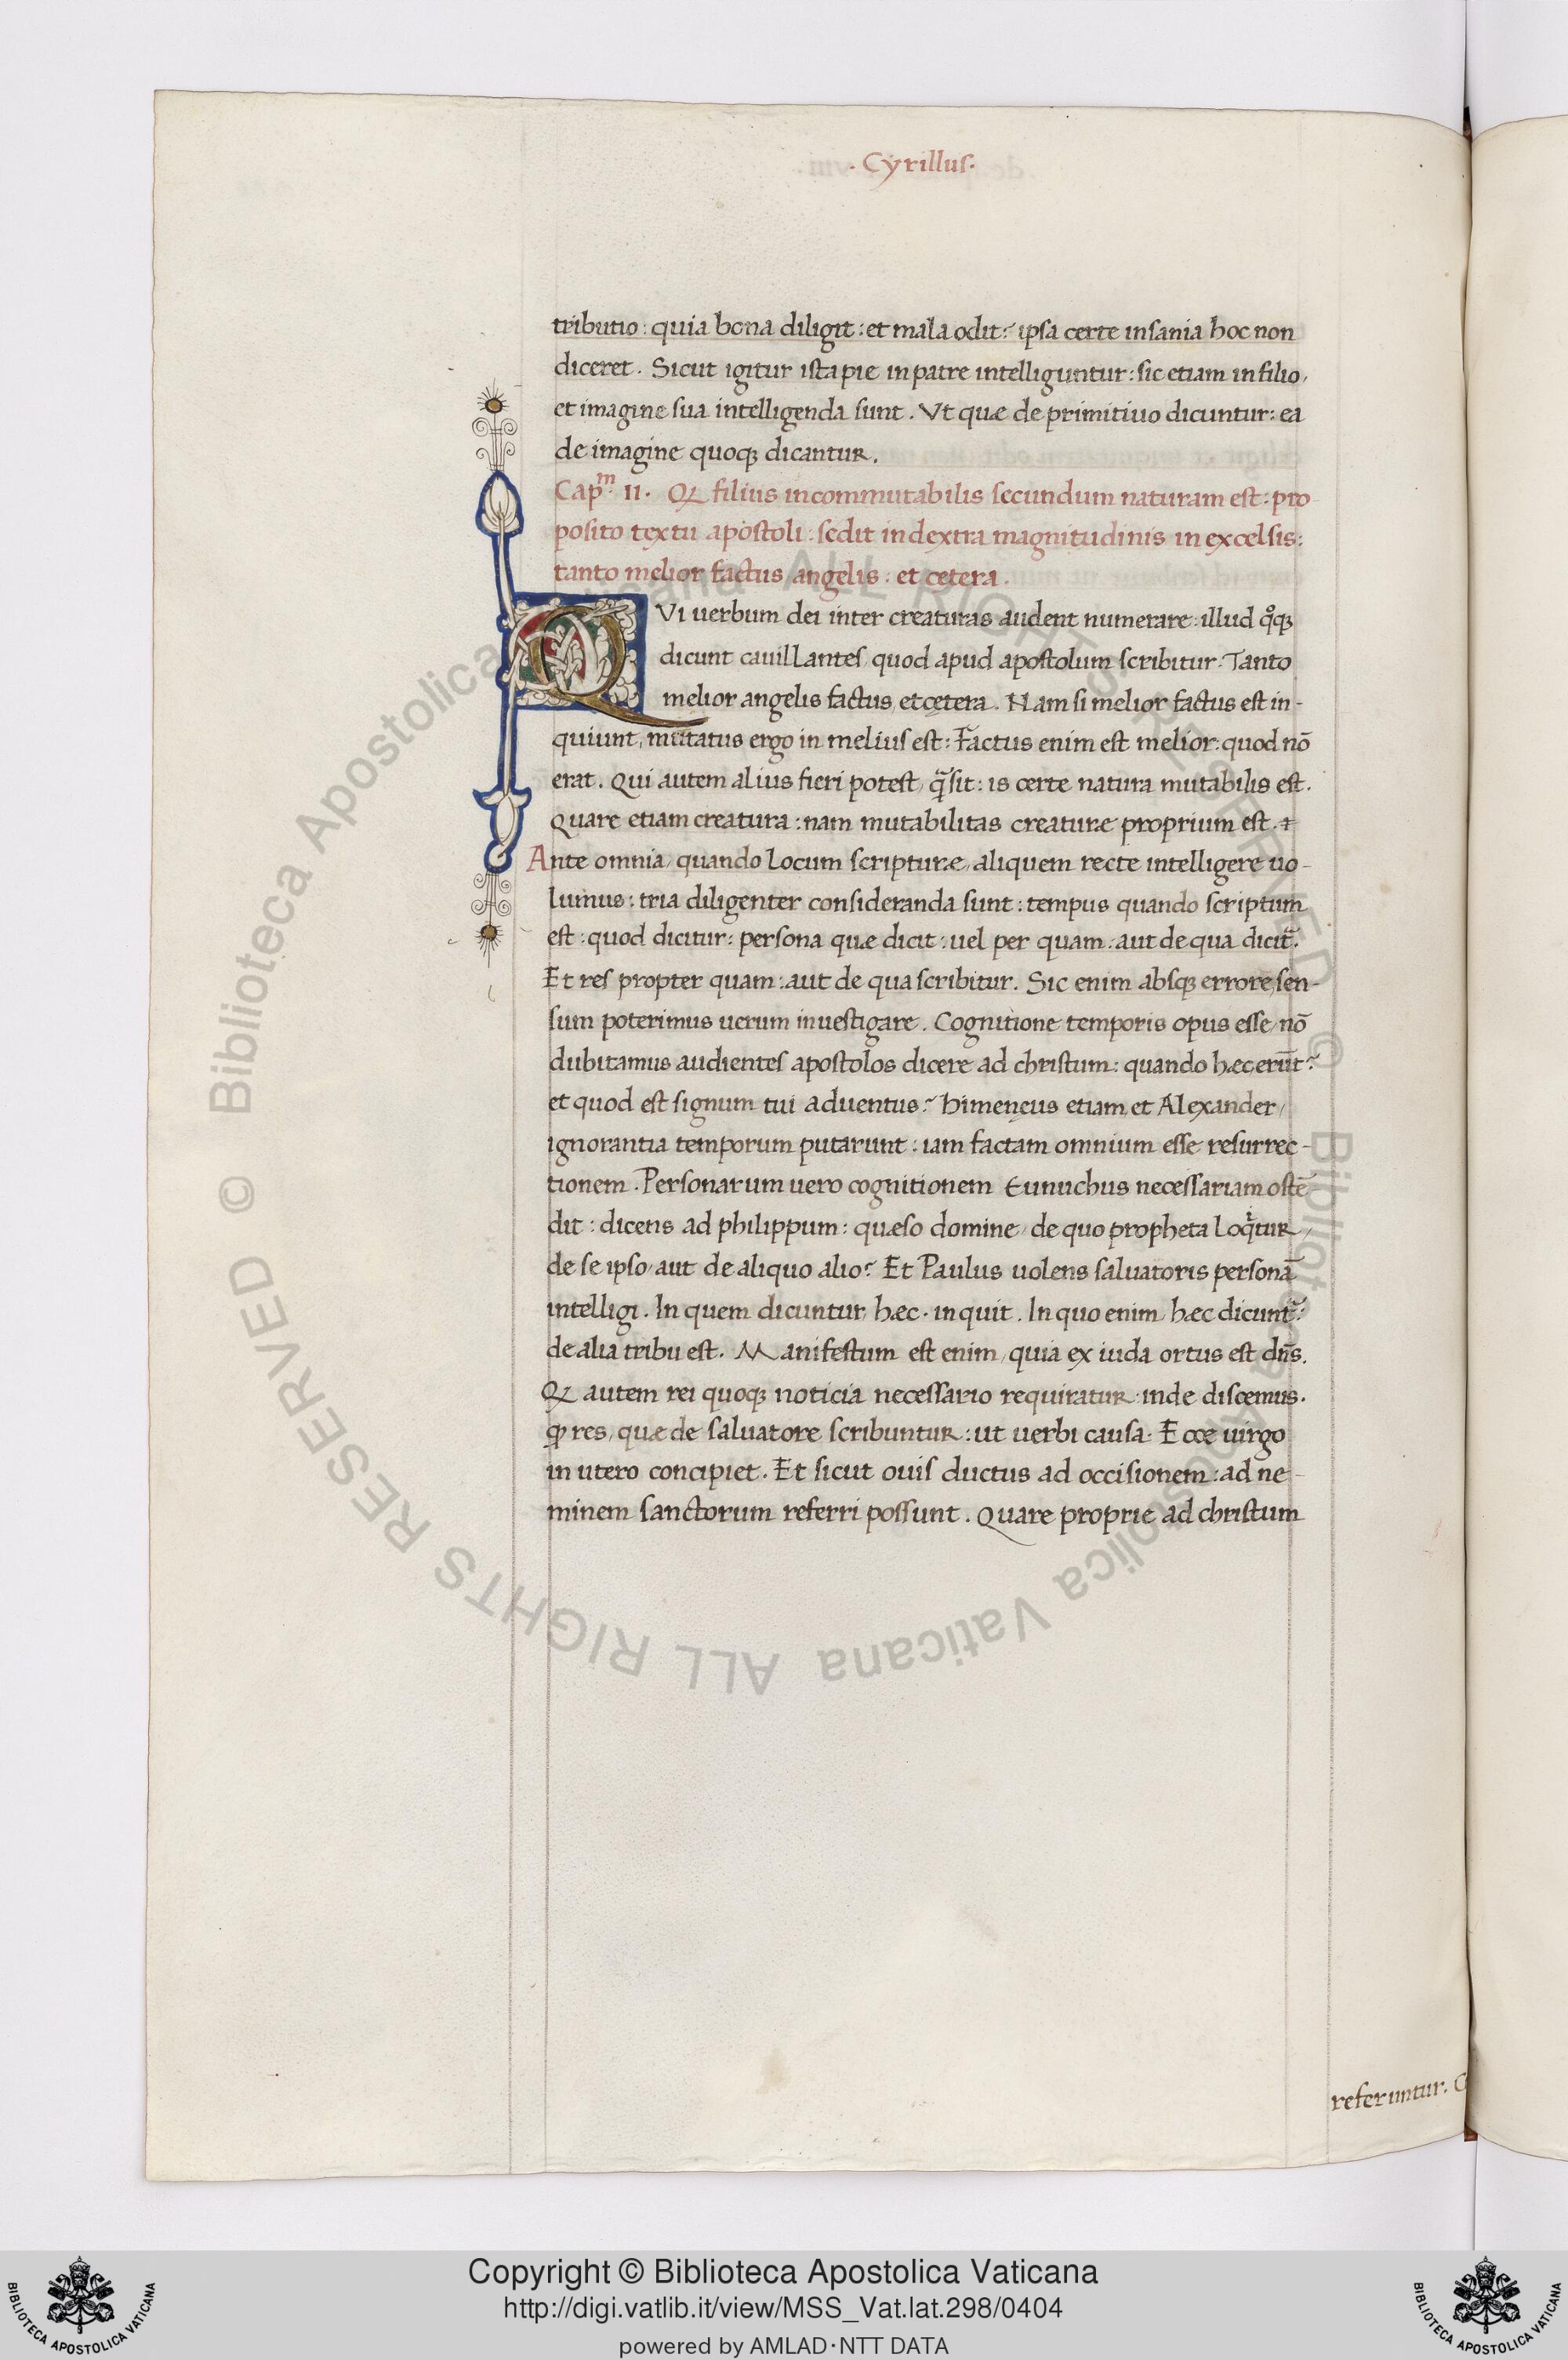 · Cyrillus·
tributio: quia bona diligit: et mala odit? ipsa certe insania hoc non
diceret. Sicut igitur ista pie in patre intelliguntur: sic etiam in filio,
et imagine sua intelligenda sunt. Vt quæ de primitiuo dicuntur: ea
de imagine quoqꝫ dicantur.
Capᵐ· II. Qꝫ filius incommutabilis secundum naturam est: pro
posito textu apostoli: sedit in dextra magnitudinis in excelsis:
tanto melior factus angelis: et cetera.
QVi uerbum dei inter creaturas audent numerare: illud qͦqꝫ
dicunt cauillantes, quod apud apostolum scribitur. Tanto
melior angelis factus, et cętera. Nam si melior factus est in-
quiunt, mutatus ergo in melius est: Factus enim est melior: quod nō
erat. Qui autem alius fieri potest, q̃ sit: is certe natura mutabilis est.
Quare etiam creatura: nam mutabilitas creaturæ proprium est.
Ante omnia, quando locum scripturæ, aliquem recte intelligere uo-
lumus: tria diligenter consideranda sunt: tempus quando scriptum
est: quod dicitur: persona quæ dicit: uel per quam: aut de qua dicit᷑.
Et res propter quam: aut de qua scribitur. Sic enim absqꝫ errore, sen-
sum poterimus uerum inuestigare. Cognitione temporis opus esse, nō
dubitamus audientes apostolos dicere ad christum: quando hæc erūt?
et quod est signum tui aduentus? himenęus etiam, et Alexander,
ignorantia temporum putarunt: iam factam omnium esse resurrec-
tionem. Personarum uero cognitionem Eunuchus necessariam ostē
dit: dicens ad philippum: quæso domine, de quo propheta loqͥtur,
de se ipso, aut de aliquo alio? Et Paulus uolens saluatoris personā
intelligi. In quem dicuntur, hæc· inquit. In quo enim, hæc dicunt᷑:
de alia tribu est. Manifestum est enim, quia ex iuda ortus est dn̄s.
Qꝫ autem rei quoqꝫ noticia necessario requiratur, inde discemus.
qꝫ res, quæ de saluatore scribuntur: ut uerbi causa: Ecce uirgo
in utero concipiet. Et sicut ouis ductus ad occisionem: ad ne-
minem sanctorum referri possunt. Quare proprie ad christum
referuntur.
© Biblioteca Apostolica Vaticana ALL RIGHTS RESERVED © Biblioteca Apostolica Vaticana ALL RIGHTS RESERVED
Copyright © Biblioteca Apostolica Vaticana
http://digi.vatlib.it/view/MSS_Vat.lat.298/0404
powered by AMLAD·NTT DATA
BIBLIOTECA APOSTOLICA VATICANA
BIBLIOTECA APOSTOLICA VATICANA